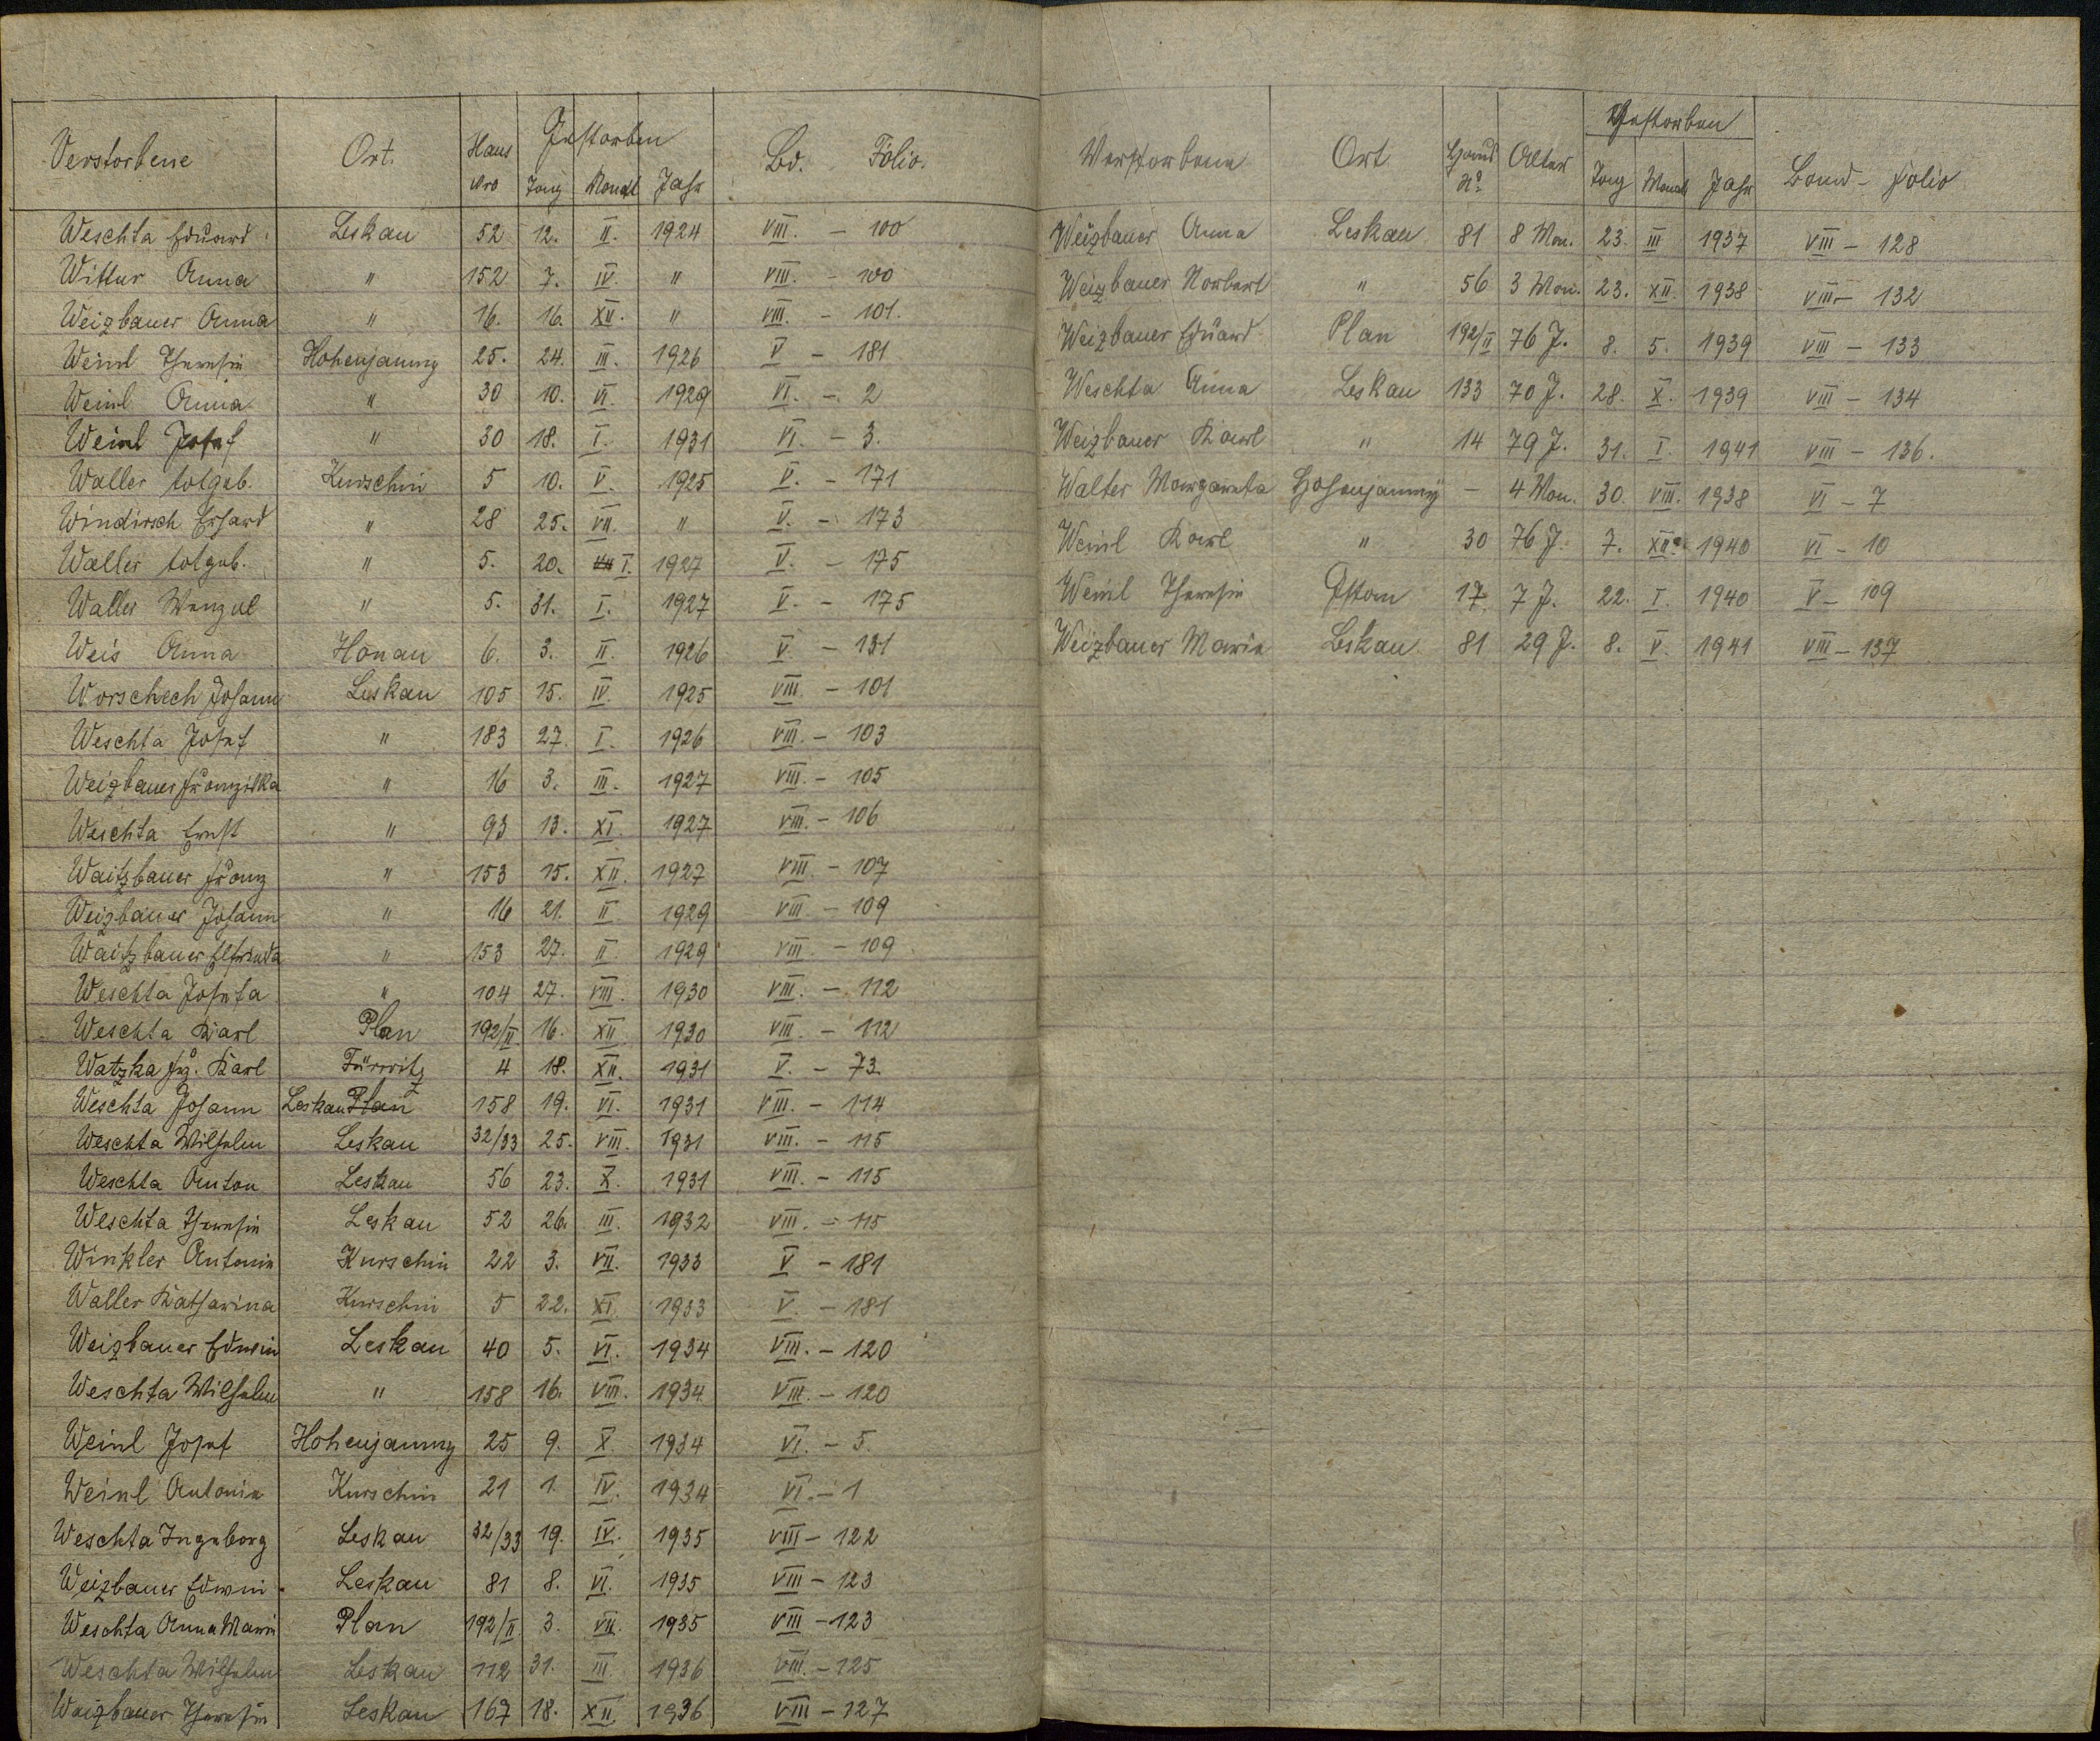 Verstorbene Ort. Haus Nro Gestorben Tag Monat Jahr Bd. Folio.
Weschta Eduard Leskau 52 12. II. 1924 VIII. - 100
Wittur Anna " 152 7. IV. " VIII. - 100
Weizbauer Anna " 16. 16. XII. " VIII. - 101.
Weinl Theresia Hohenjamny 25. 24. III. 1926 V - 181
Weinl Anna " 30 10. VI. 1929 VI. - 2
Weinl Josef " 30 18. I. 1931 VI. - 3.
Waller totgeb. Kurschin 5 10. V. 1925 V. - 171
Windirsch Erhard " 28 25. VII. " V. - 173
Waller totgeb. " 5. 20. I. 1927 V. - 175
Waller Wenzel " 5. 31. I. 1927 V. - 175
Weis Anna Honau 6. 3. II. 1926 V. - 131
Worschech Johann Leskau 105 15. IV. 1925 VIII. - 101
Weschta Josef " 183 27. I. 1926 VIII. - 103
Weizbauer Franziska " 16 3. III. 1927 VIII. - 105
Weschta Ernst " 93 13. XI. 1927 VIII. - 106
Waitzbauer Franz " 153 15. XII. 1927 VIII - 107
Weizbauer Johann " 16 21. II. 1929 VIII - 109
Waitzbauer Elfrieda " 153 27. II. 1929 VIII. - 109
Weschta Josefa " 104 27. VIII. 1930 VIII. - 112
Weschta Karl Plan 192/II. 16. XII. 1930 VIII. - 112
Watzka Fz. Karl Fürwitz 4 18. XII. 1931 V. - 73.
Weschta Johann Leskau Plan 158 19. VI. 1931 VIII. - 114
Weschta Wilhelm Leskau 32/33 25. VIII. 1931 VIII. - 115
Weschta Anton Leskau 56 23. X. 1931 VIII. - 115
Weschta Theresia Leskau 52 26. III. 1932 VIII. - 115
Winkler Antonia Kurschin 22 3. VII. 1933 V - 181
Waller Katharina Kurschin 5 22. XI. 1933 V. - 181
Weizbauer Edwin Leskau 40 5. VI. 1934 VIII. - 120
Weschta Wilhelm " 158 16. VIII. 1934 VIII. - 120
Weinl Josef Hohenjamny 25 9. X. 1934 VI. - 5.
Weinl Antonia Kurschin 21 1. IV. 1934 VI. - 1
Weschta Ingeborg Leskau 32/33 19. IV. 1935 VIII - 122
Weizbauer Edwin Leskau 81 8. VI. 1935 VIII - 123
Weschta Anna Maria Plan 192/II. 3. VII. 1935 VIII - 123
Weschta Wilhelm Leskau 112 31. III. 1936 VIII. - 125
Waizbauer Theresia Leskau 167 18. XII. 1936 VIII - 127
Verstorbene Ort Haus No Alter Gestorben Tag Monat Jahr Band - Folio
Weizbauer Anna Leskau 81 8 Mon. 23. III 1937 VIII - 128
Weizbauer Norbert " 56 3 Mon. 23. XII. 1938 VIII - 132
Weizbauer Eduard Plan 192/II 76 J. 8. 5. 1939 VIII - 133
Weschta Anna Leskau 133 70 J. 28. X. 1939 VIII - 134
Weizbauer Karl " 14 79 J. 31. I. 1941 VIII - 136.
Walter Margareta Hohenjamny - 4 Mon. 30. VIII. 1938 VI - 7
Weinl Karl " 30 76 J. 7. XII. 1940 VI - 10
Weinl Theresia 17. 7 J. 22. I. 1940 V - 109
Weizbauer Maria Leskau 81 29 J. 8. V. 1941 VIII - 137